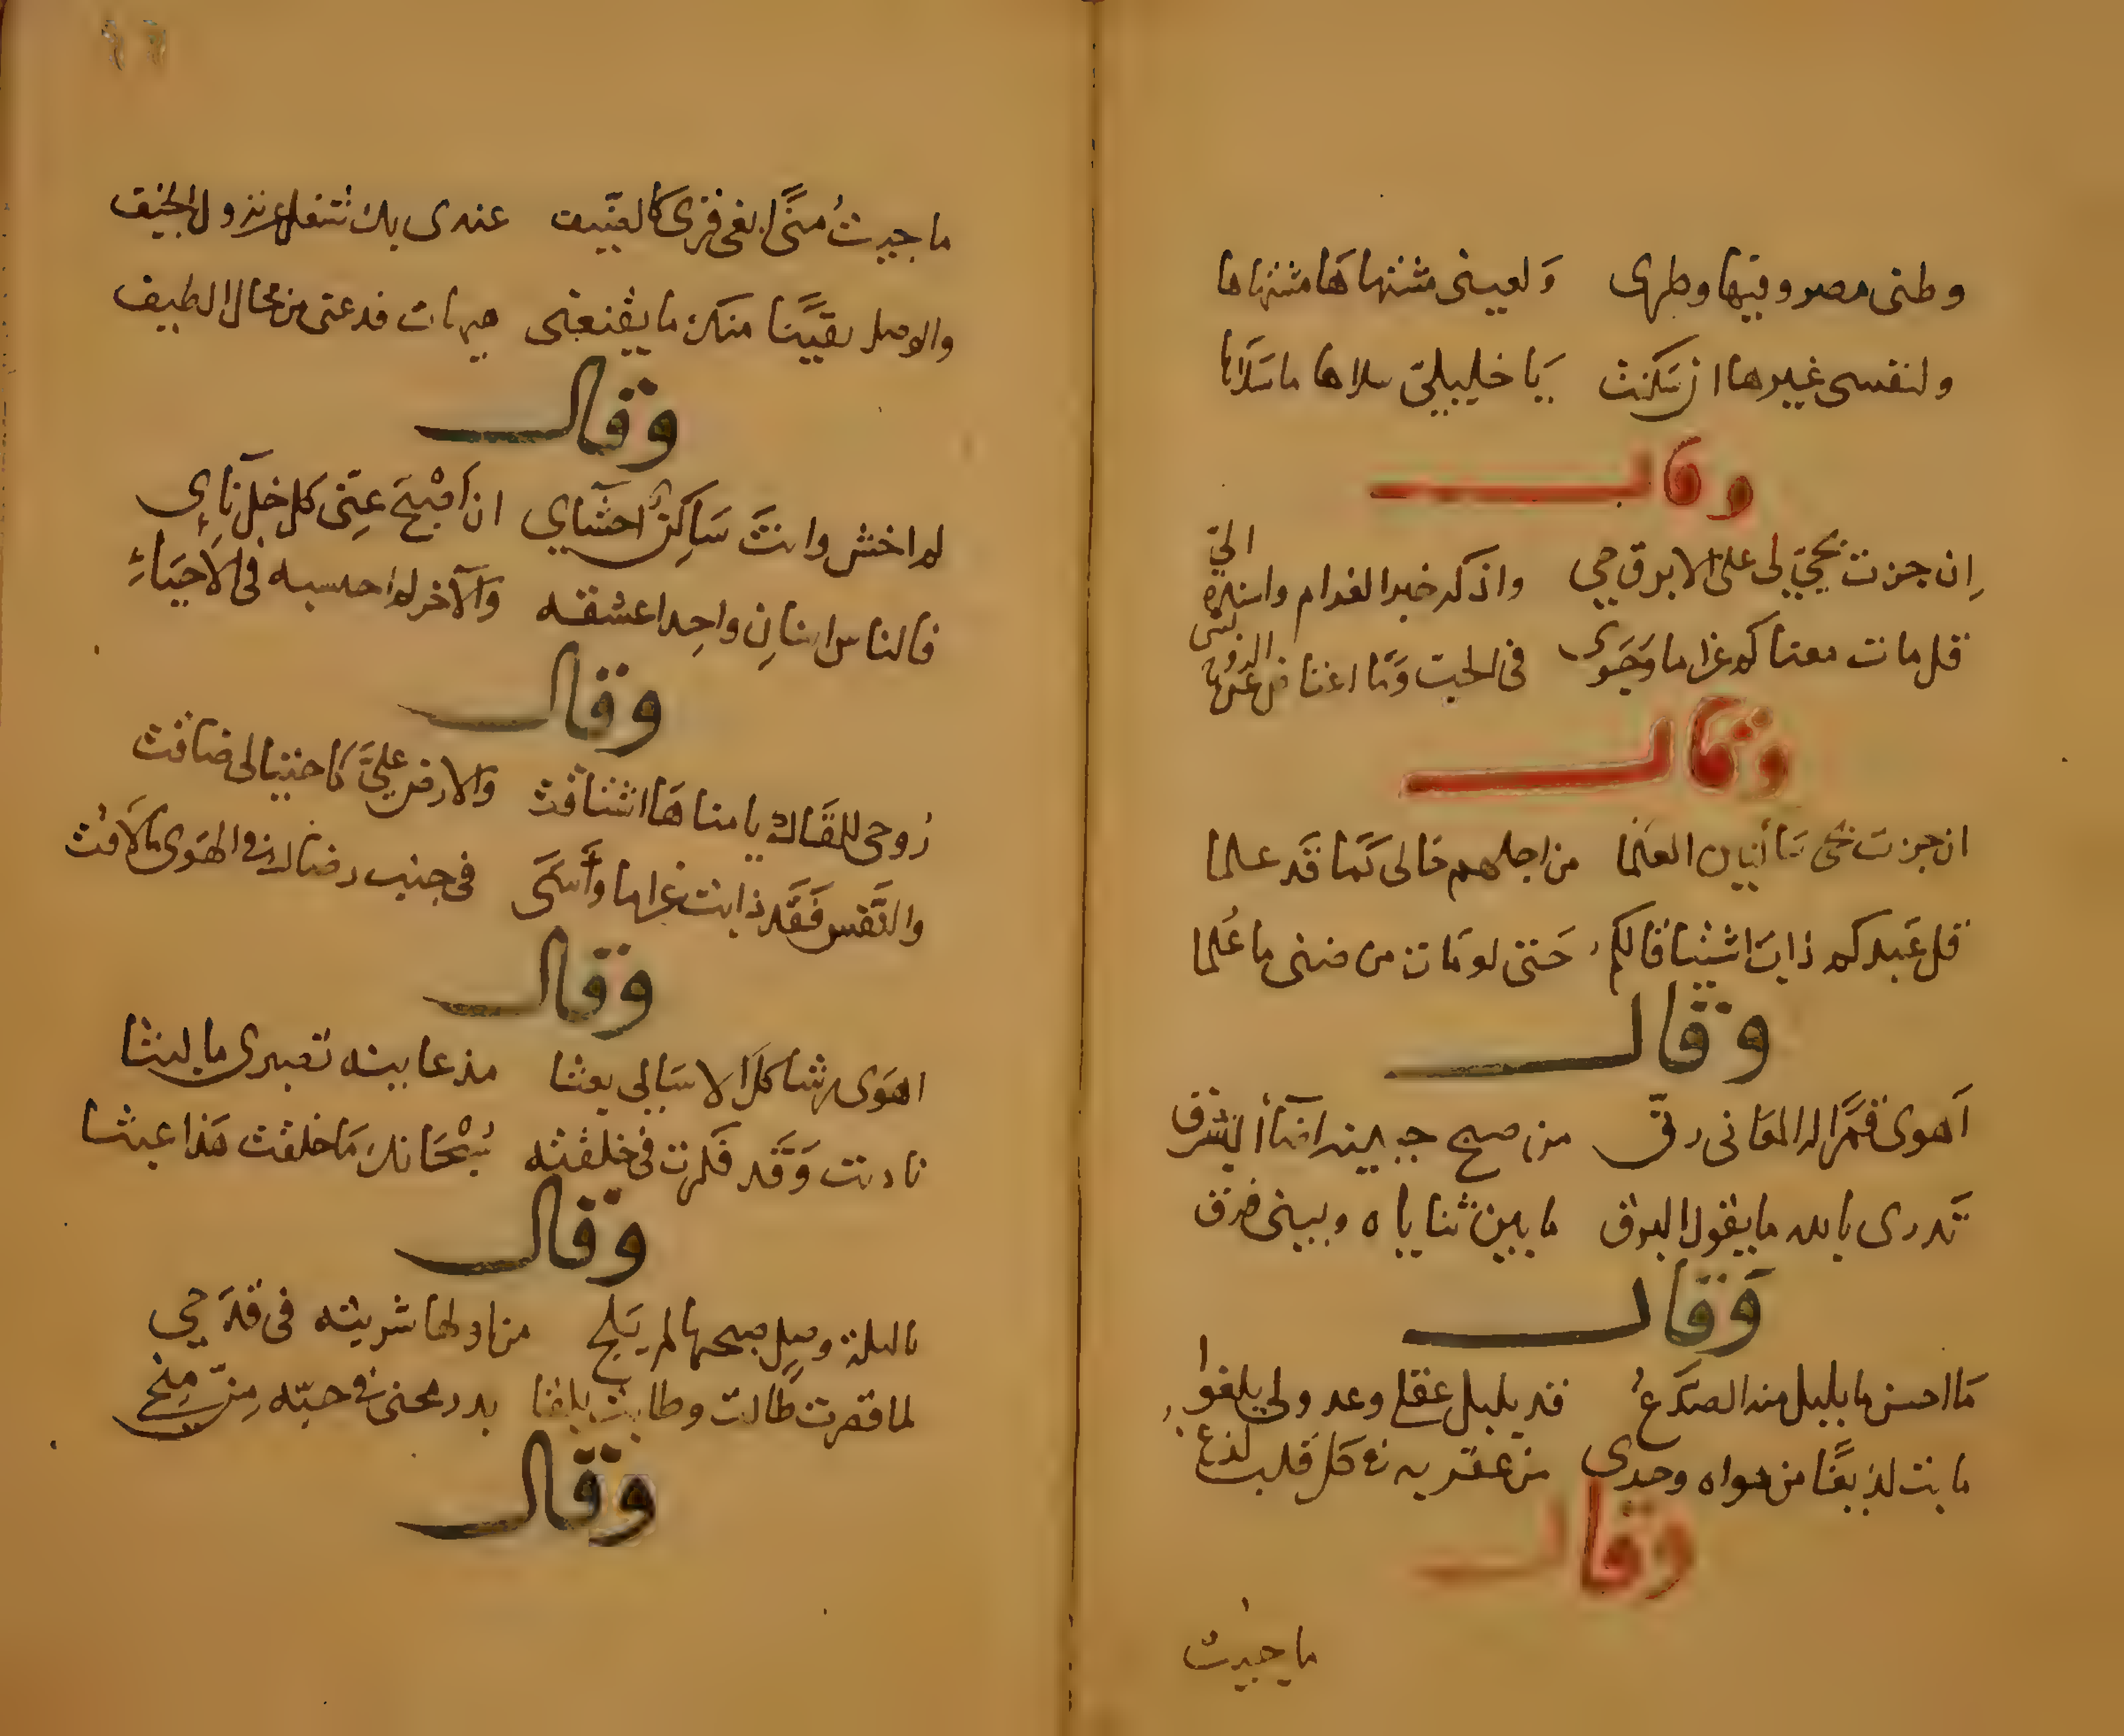 وطنى مصر وفيها وطرى ولعينى مشتهاها مشتهاها
ولنفسى غيرها ان سكنت يا خليليّ سلاها ما سلاها
وقال
إن جزت بحيّ لى على الابرق حي واذكر خبر الغرام واسنده اليّ
قل مات معناكم غراما وجوى فى الحب وما اعتاض عن الروح بشى
وقال
ان جزت بحى ساكنين العلما من اجلهم حالى كما قد علما
قل عبدكم ذاب اشتياقا لكم حتى لو مات من ضنى ما علما
وقال
أهوى قمرا له المعانى رق من صبح جبينه اضاء الشرق
تدرى بالله ما يقول البرق ما بين ثناياه وبينى فرق
وقال
ما احسن ما بلبل منه الصدغ قد بلبل عقلى وعذولى يلغوا
ما بت لديغا من هواه وحدى من عقربه فى كل قلب لدغ
وقال
ما جيت
ما جيت منى ابغى قرى كالضيف عندى بك شغل عن نزول الخيف
والوصل يقينا منك ما يقنعنى هيهات فدعنى من محال الطيف
وقال
لم اخش وانت ساكن احشاي ان اصبح عنى كل خل نائى
فالناس اثنان واحد اعشقه والآخر لم احسبه فى الاحياء
وقال
روحى للقاك يا مناها اشتاقت والارض عليّ كاحتيالى ضاقت
والنفس فقد ذابت غراما وأسى فى جنب رضاك فى الهوى ما لاقت
وقال
اهوى رشا كل الاسا لى بعثا مذ عاينه تصبرى ما لبثا
ناديت وقد فكرت فى خلقته سبحانك ما خلقت هذا عبثا
وقال
يا ليلة وصل صبحها لم يلح من اولها شربته فى قدحي
لما قصرت طالت وطابت بلقا بدر محنى فى حبه من منحي
وقال